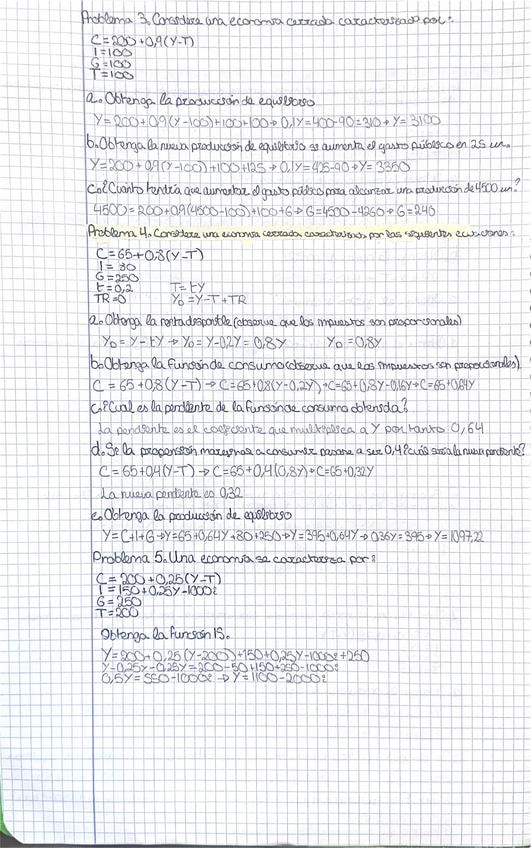 Problema 3. Considere una economía cerrada caracterizada por:
C = 200 + 0,9 (Y-T)
I = 100
G = 100
T = 100
a. Obtenga la producción de equilibrio
Y = 200 + 0,9 (Y-100) + 100 + 100 → 0,1Y = 400 - 90 = 310 → Y = 3100
b. Obtenga la nueva producción de equilibrio si aumenta el gasto público en 25 un.
Y = 200 + 0,9 (Y-100) + 100 + 125 → 0,1Y = 425 - 90 → Y = 3350
c. ¿Cuánto tendría que aumentar el gasto público para alcanzar una producción de 4500 un?
4500 = 200 + 0,9 (4500-100) + 100 + G → G = 4500 - 4260 → G = 240
Problema 4. Considere una economía cerrada caracterizada por las siguientes ecuaciones:
C = 65 + 0,8 (Y-T)
I = 80
G = 250
t = 0,2 T = tY
TR = 0 YD = Y - T + TR
a. Obtenga la renta disponible (observe que los impuestos son proporcionales)
YD = Y - tY → YD = Y - 0,2Y = 0,8Y YD = 0,8Y
b. Obtenga la función de consumo (observe que los impuestos son proporcionales)
C = 65 + 0,8 (Y-T) → C = 65 + 0,8 (Y - 0,2Y) → C = 65 + 0,8Y - 0,16Y → C = 65 + 0,64Y
c. ¿Cuál es la pendiente de la función de consumo obtenida?
La pendiente es el coeficiente que multiplica a Y por tanto 0,64
d. Si la propensión marginal a consumir pasara a ser 0,4 ¿cuál sería la nueva pendiente?
C = 65 + 0,4 (Y-T) → C = 65 + 0,4 (0,8Y) → C = 65 + 0,32Y
La nueva pendiente es 0,32
e. Obtenga la producción de equilibrio
Y = C + I + G → Y = 65 + 0,64Y + 80 + 250 → Y = 395 + 0,64Y → 0,36Y = 395 → Y = 1097,22
Problema 5. Una economía se caracteriza por:
C = 200 + 0,25 (Y-T)
I = 150 + 0,25Y - 1000i
G = 250
T = 200
Obtenga la función IS.
Y = 200 + 0,25 (Y-200) + 150 + 0,25Y - 1000i + 250
Y - 0,25Y - 0,25Y = 200 - 50 + 150 + 250 - 1000i
0,5Y = 550 - 1000i → Y = 1100 - 2000i